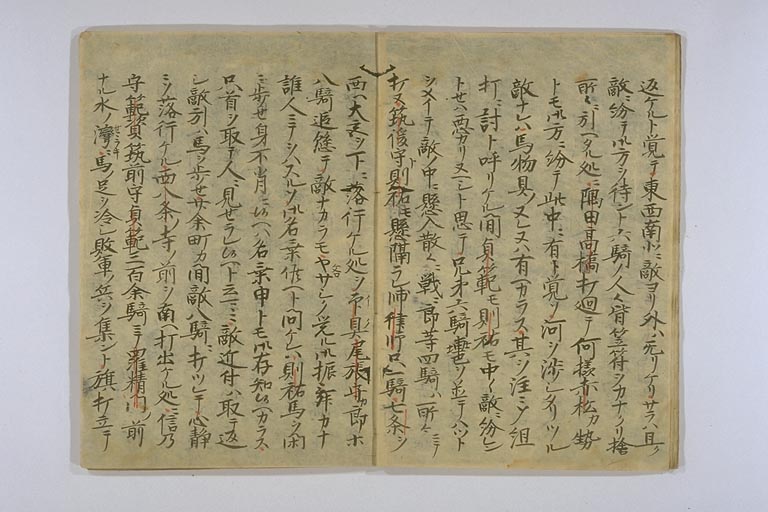 返ケルト覚テ東西南北ニ敵ヨリ外ハ无リケリサラハ且ク
敵ニ紛テ御方シ待ント六騎ノ人々皆笠符シカナクリ捨
所ニ引ヘタル処ニ隅田高橋打廻テ何様赤松カ勢
トモ御方ニ紛テ此中ニ有ト覚ソ河シ渉シタリツル
敵ナレハ馬物具ヌレヌハ有ヘカラス其シ注ミシ組
打ニ討ト呼リケル間貞範モ則祐モ中々敵ニ紛ン
トセハ悪カリヌヘシト思テ兄弟六騎轡シ並テハツト
シメイテ敵ノ中ニ懸入散々ニ戦フ郎等四騎ハ所々ニテ
打ヌ筑後守則祐モ懸隔ラレ一騎七条シ
西ヘ大宮シ下ニ落行ケル処シ尾張守カ郎等
八騎追縫テ敵ナカラモヤサシク覚ル御振舞カナ
誰人ニテシハスルソ御名乗候ヘト問ケレハ則祐馬シ閑
ニ歩セ身不肖ニ候ヘハ名乗申トモ御存知候ヘカラス
只首シ取テ人ニ見セラレ候ヘト云ニ敵近付ハ取テ返
シ敵引ハ馬シ歩セ廿余町カ間敵八騎ト打ツレテ心静
ニソ落行ケル西八条ノ寺ノ前シ南ヘ打出ケル処ニ信乃
守範資筑前守貞範三百余騎ニテ羅精門ノ前
ナル水ノ澪ニ馬ノ足シ冷シ敗軍ノ兵シ集ント旗打立テ